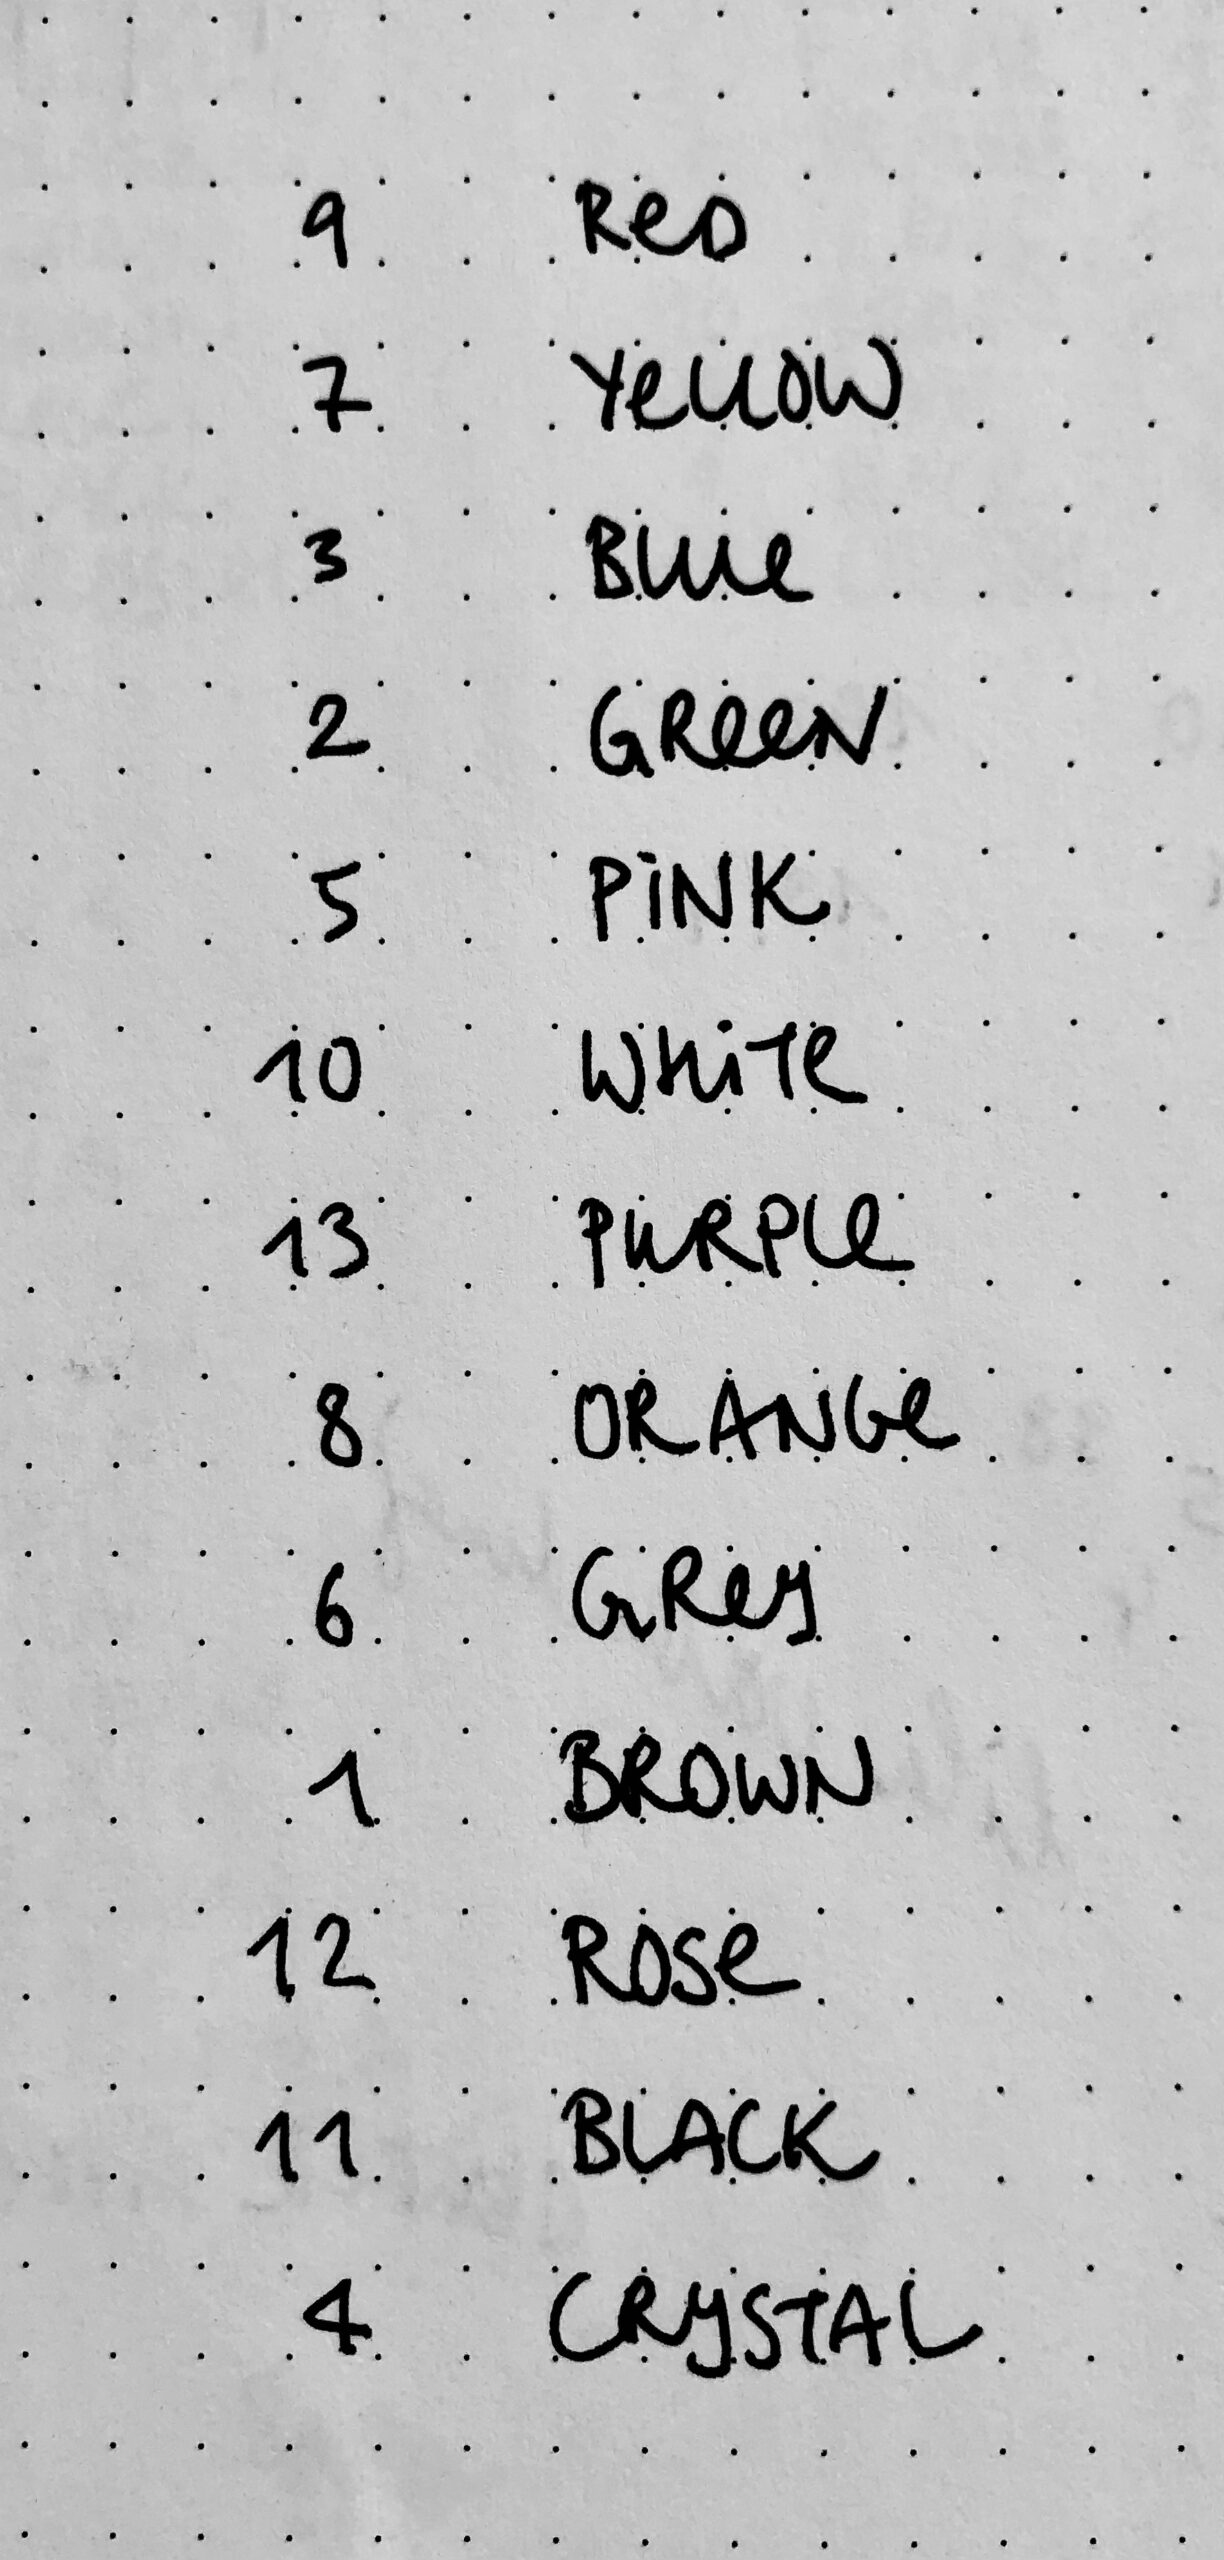 9 Red
7 Yellow
3 Blue
2 GReen
5 PiNK
10 White
13 PURPle
8 ORANGe
6 GRey
1 BROWN
12 ROSe
11 BLACK
4 CRYSTAL